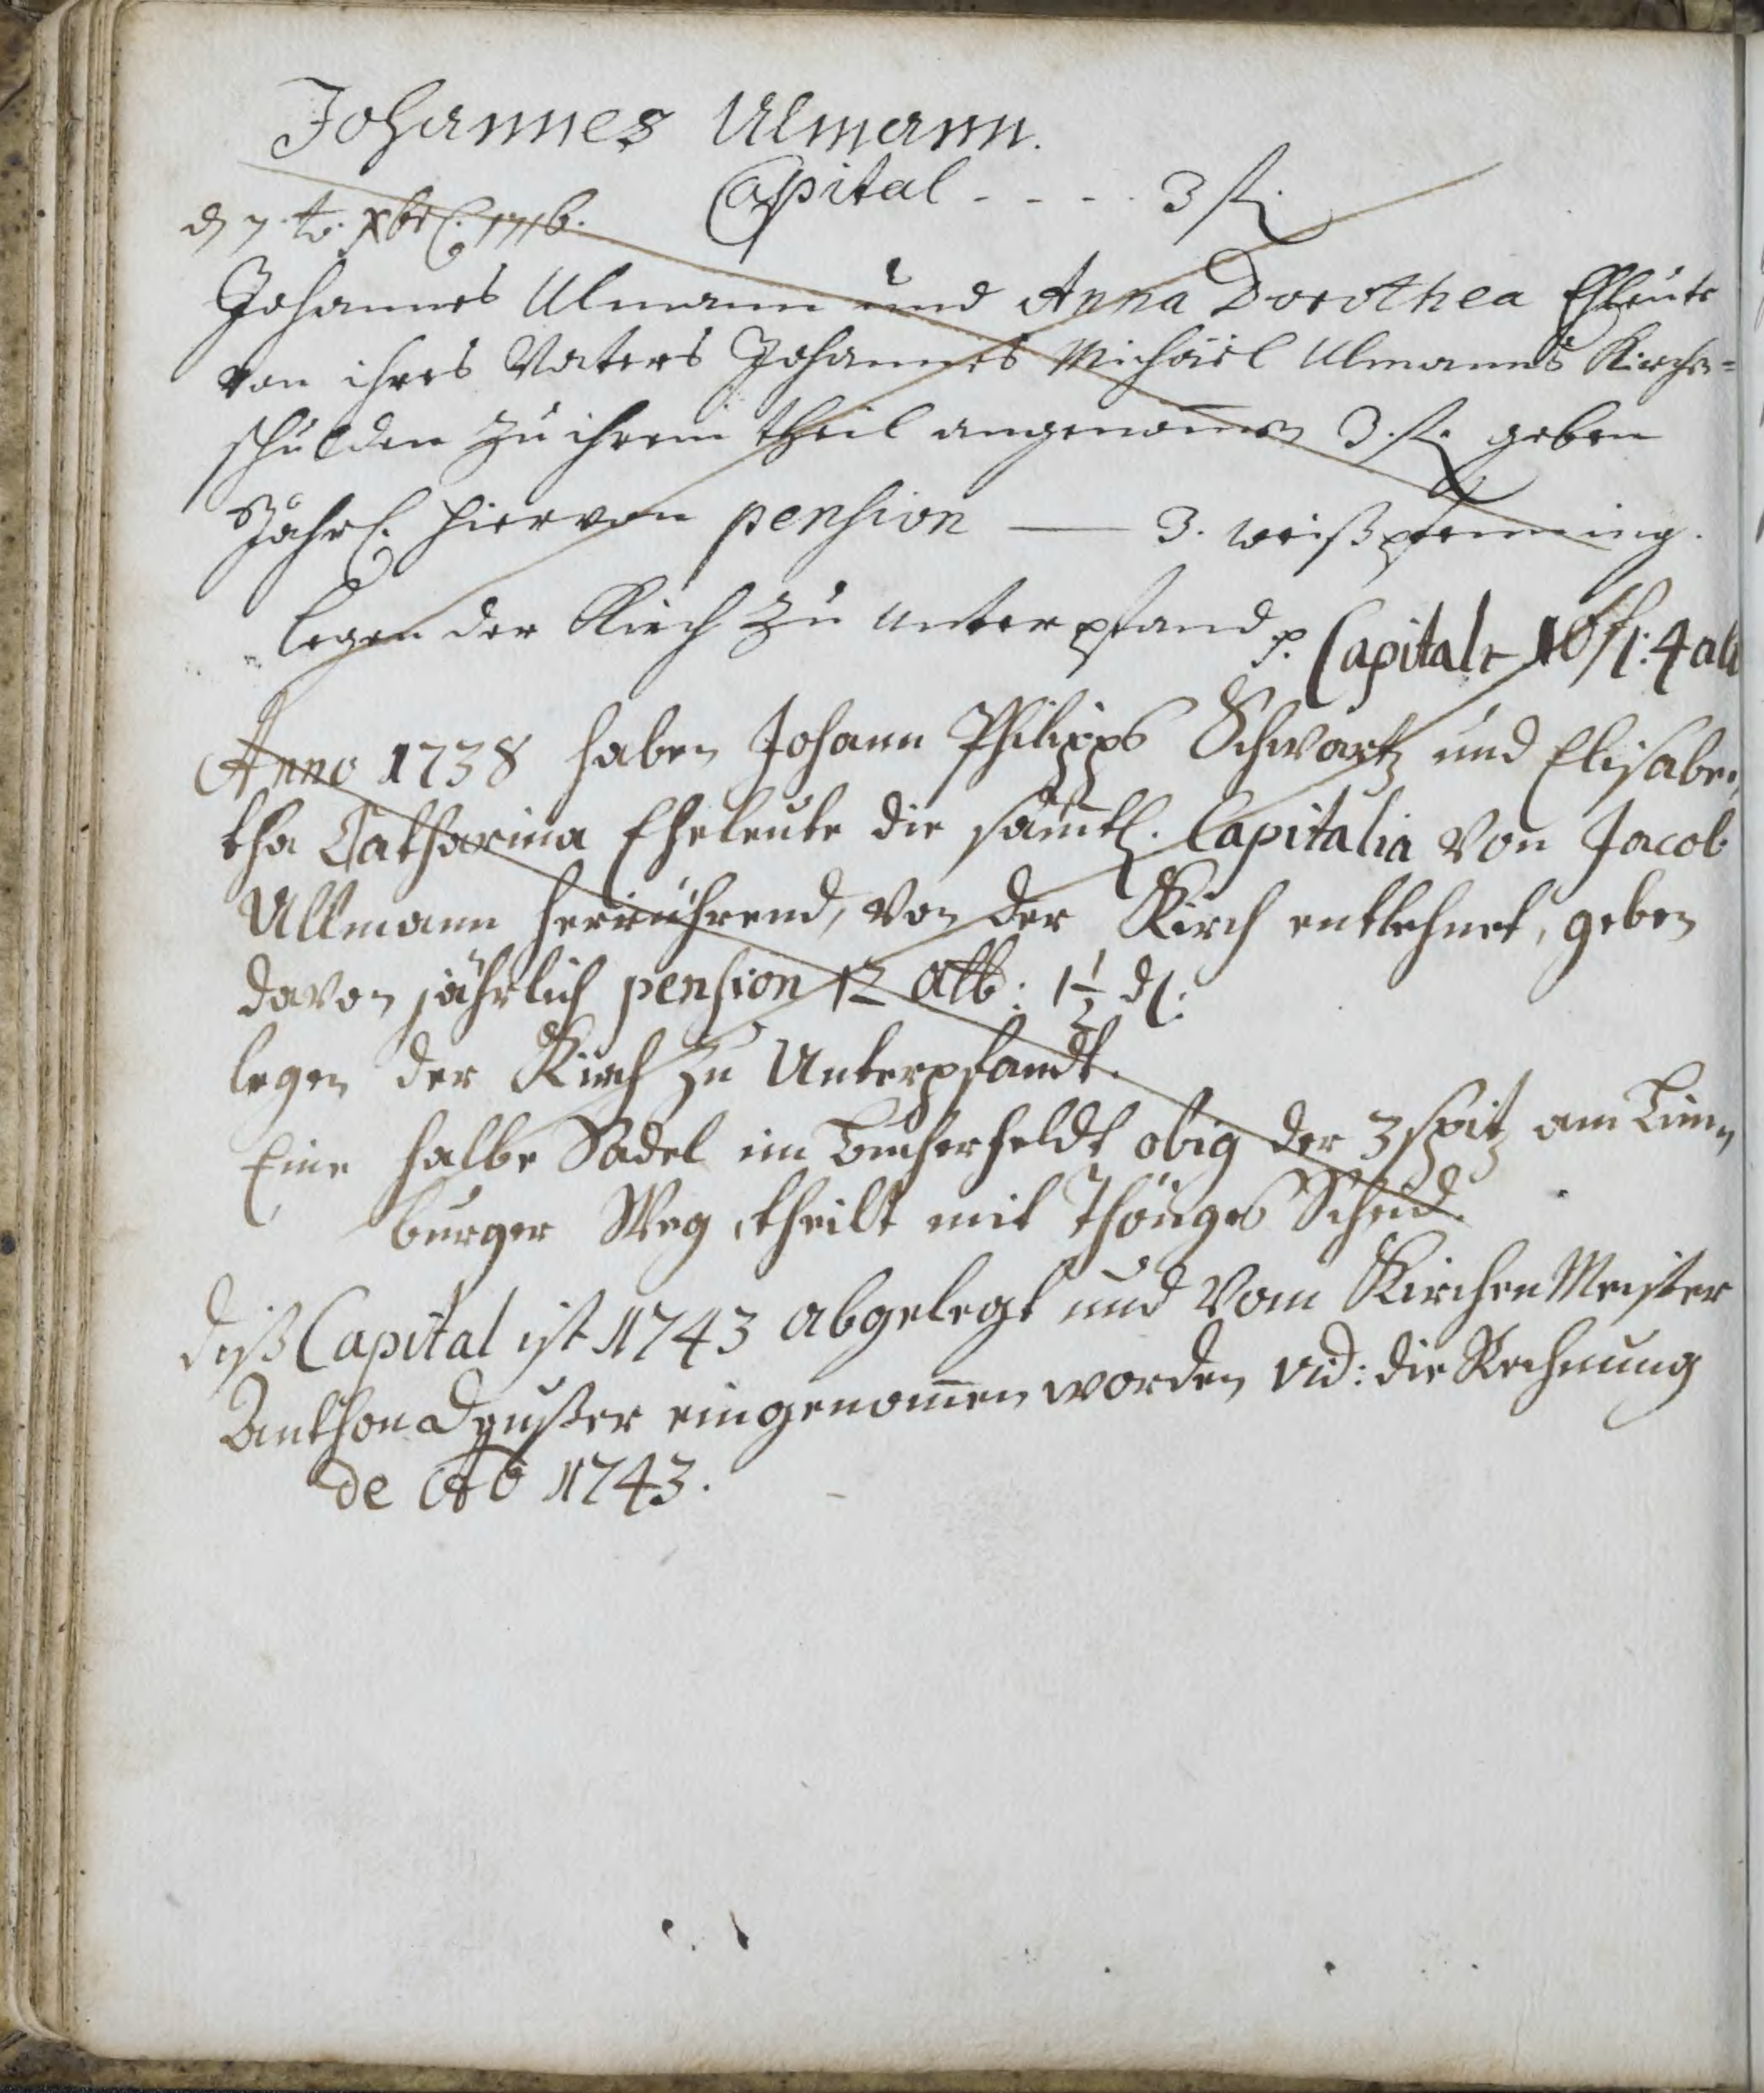 Johannes Ulmann.
Capital - - - - 3 fl.
d 7. t. xbr. 1716.
Johannes Ulmann und Anna Dorothea Ehleute
von ihres Vaters Johannes Michäel Ulmanns Kirchen=
schulden zu ihrem theil angenom̅en 3. fl. geben
Jährl. hiervon pension — 3. weißpfenning.
legen der Kirch zu unterpfand p.
Capitale 10 fl: 4 alb
Anno 1738 haben Johann Philipps Schwartz und Elisabe„
tha Catharina Eheleute die säm̅tl. Capitalia von Jacob
Ullmann herrührend, von der Kirch entlehnet, geben
davon jährlich pension 12 alb: 1½ dl:
legen der Kirch zu Unterpfandt.
Eine halbe Sadel im feldt obig der 3spitz am Lim„
burger Weg, theilt mit Thönges Scheid.
diß Capital ist 1743 abgelegt und vom Kirchen Meister
Anthon eingenom̅en worden vid: die Rechnung
de Ao 1743.